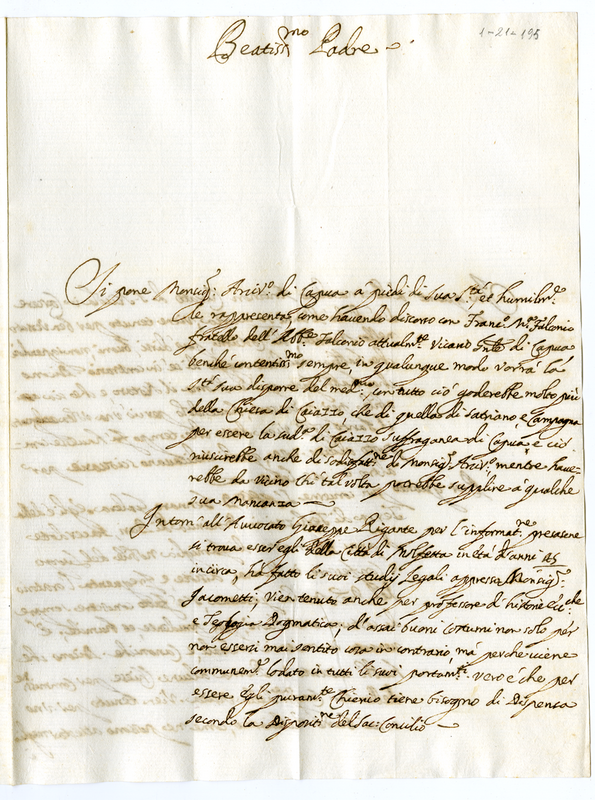 1-21-195
Beatiss.mo Padre
Si pone Monsig.r Arciv.o di Capua a piedi di Sua S.tà et humilm.te
le rappresenta come havendo discorso con Franc.o M.a Falconio
fratello dell'Abb.te Falconio attualm.te Vicario di Capua
benche contentiss.mo sempre, in qualunque modo vorrà la
S.tà Sua disporre del med.mo, con tutto ciò goderebbe molto più
della Chiesa di Caiazzo, che di quella di Satriano, e Campagna
per essere la sud.a di Caiazzo suffraganea di Capua, e ciò
riuscirebbe anche di sodisfat.ne di Monsig.r Arciv.o mentre have-
rebbe da vicino chi tal volta potrebbe supplire à qualche
sua mancanza
Intorn' all'Avvocato Giuseppe Rigante per l'informat.ne presasene
si trova esser egli della Città di Molfetta in età d'anni 45
incirca, hà fatto li suoi studij legali appresso Monsig.r
Jacometti, vien tenuto anche per professore d'historia Ecc.che
e Teologia Dogmatica, d'assai buoni costumi non solo per
non essersi mai sentito cosa in contrario mà perche viene
communem.te lodato in tutti li suoi portam.ti. Vero é che per
essere Egli puram.te Chierico tiene bisogno di Dispensa
secondo la Dispositi.ne del Sac. Concilio